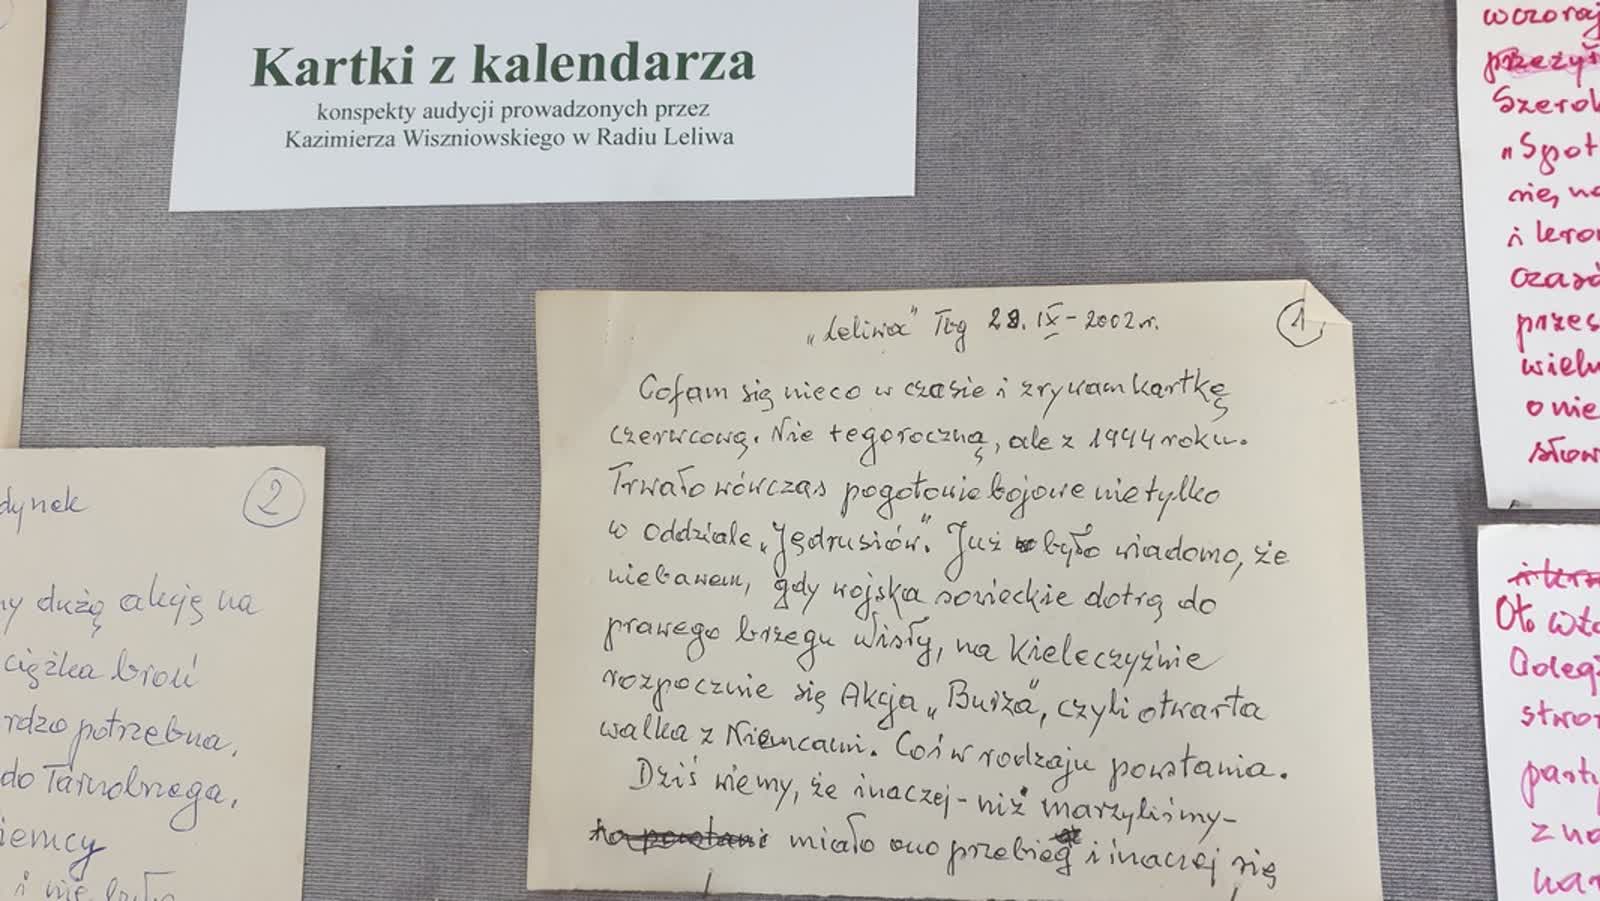 Kartki z kalendarza
konspekty audycji prowadzonych przez
Kazimierza Wiszniowskiego w Radiu Leliwa
„Leliwa” Tbg 28. IX - 2002 r.
1
Cofam się nieco w czasie i zrywam kartkę
czerwcową. Nie tegoroczną, ale z 1944 roku.
Trwało wówczas pogotowie bojowe nie tylko
w oddziale „Jędrusiów”. Już było wiadomo, że
niebawem, gdy wojska sowieckie dotrą do
prawego brzegu Wisły, na Kielecczyźnie
rozpocznie się Akcja „Burza”, czyli otwarta
walka z Niemcami. Coś w rodzaju powstania.
Dziś wiemy, że inaczej - niż marzyliśmy -
miało ono przebieg i inaczej się
2
dynek
my dużą akcję na
ciężka broń
rdzo potrzebna,
do Tarnobrzega,
iemcy
i nie było
wczoraj
przeżył
Szerok
„Spot
się, na
i kro
czasó
przes
wielu
o nie
słow
Oto wła
Odleg
stwo
party
zna
war